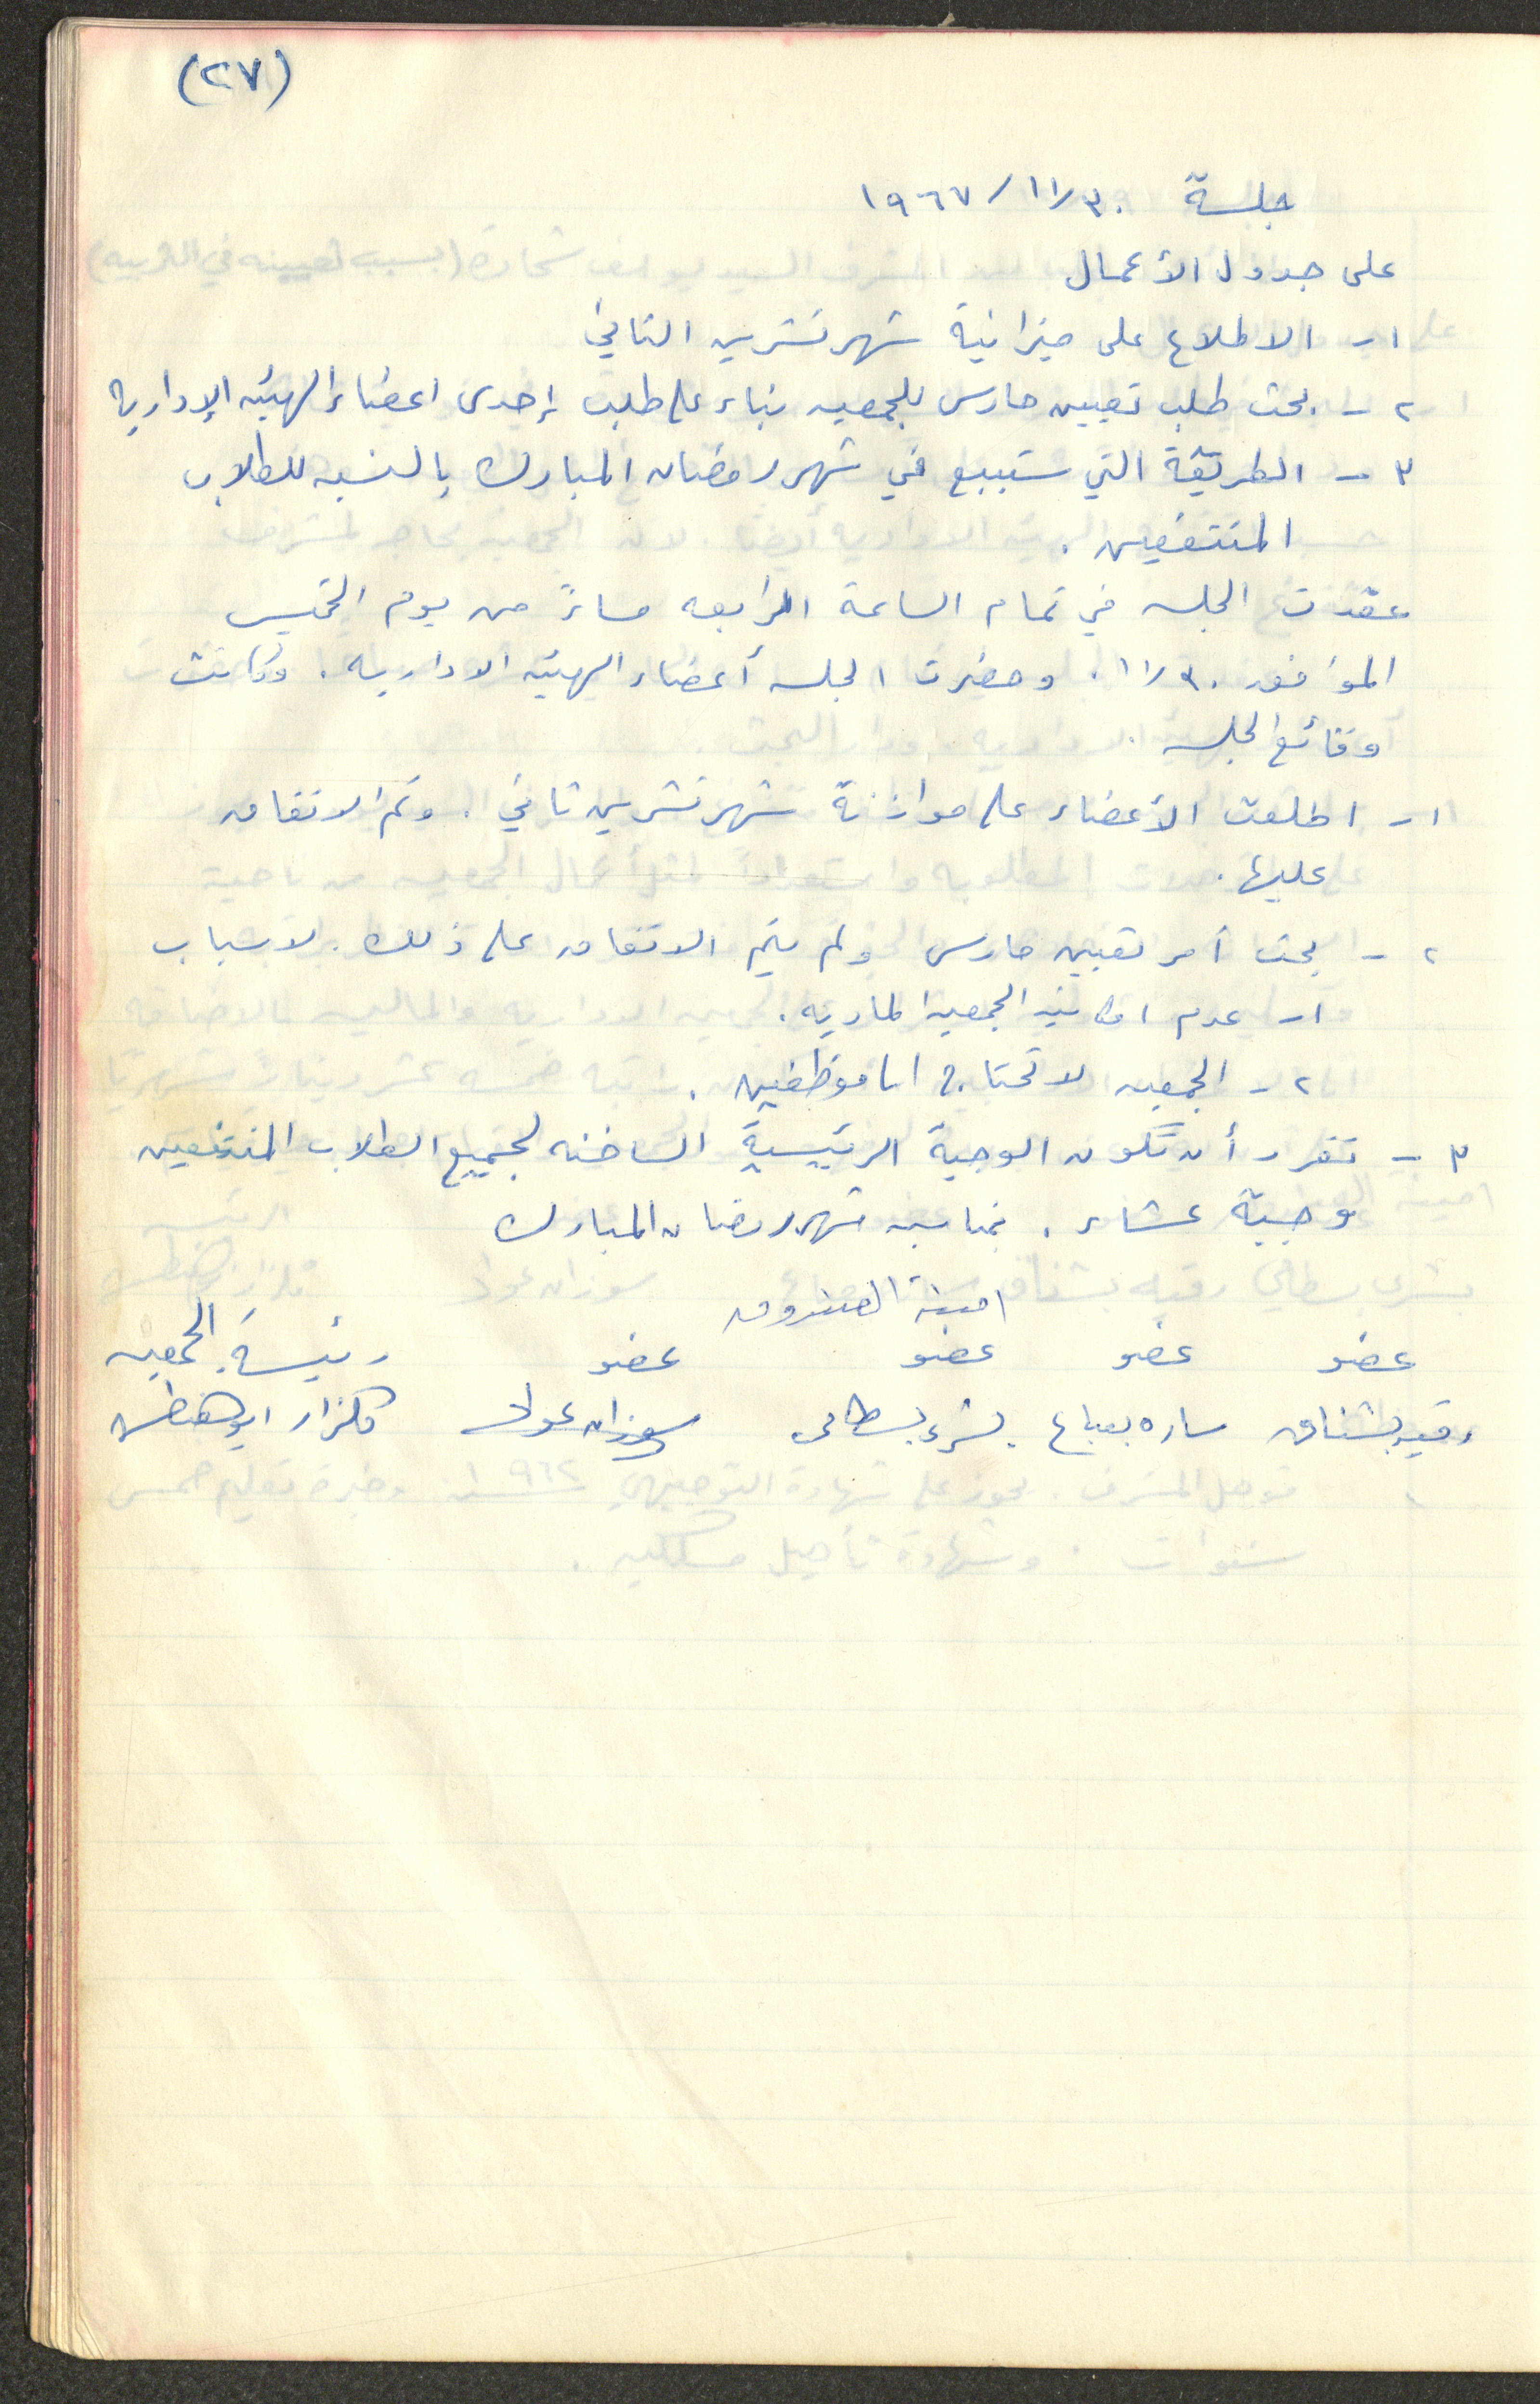 (٢٧)
جلسة ٣٠/١١/١٩٦٧
على جدول الأعمال
١- الاطلاع على ميزانية شهر تشرين الثاني
٢- بحث طلب تعيين حارس للجمعيه بناء على طلب إحدى اعضاء الهيئه الإداريه
٣- الطريقة التي ستتبع في شهر رمضان المبارك بالنسبه للطلاب
المنتفعين.
عقدت الجلسه في تمام الساعة الرابعه مساءً من يوم الخميس
الموافق ٣٠/١١. وحضرت الجلسه أعضاء الهيئه الاداريه. وكانت
وقائع الجلسه.
١- اطلعت الأعضاء على موازنة شهر تشرين ثاني. وتم الاتفاق
عليها.
٢- بحث أمر تعيين حارس ولم يتم الاتفاق على ذلك. لاسباب
١- عدم امكانيه الجمعيه الماديه.
٢- الجمعيه لا تحتاج الى موظفين.
٣- تقرر أن تكون الوجبة الرئيسية الساخنه لجميع الطلاب المنتفعين
وجبة عشاء. بمناسبه شهر رمضان المبارك
امينة الصندوق
عضو عضو عضو عضو رئيسة الجمعيه
رقيه بشناق ساره بعباع بشرى بسطامي سوزان عواد گلزار ابو هنطش